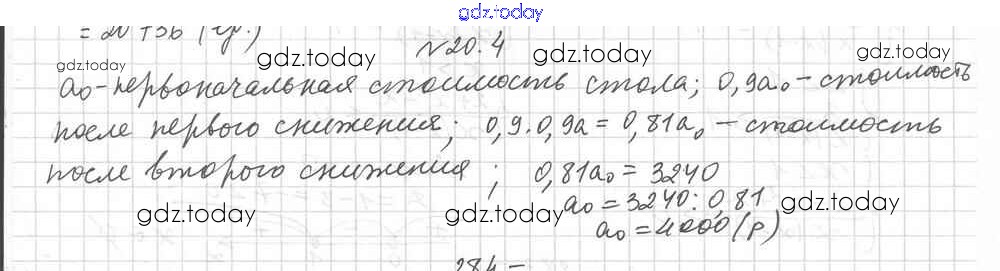 gdz.today
= 20 + 3b (гр.)
№20.4
gdz.today gdz.today gdz.today
a₀ - первоначальная стоимость стола; 0,9a₀ - стоимость
после первого снижения; 0,9·0,9a = 0,81a₀ - стоимость
после второго снижения; 0,81a₀ = 3240
a₀ = 3240 : 0,81
gdz.today gdz.today gdz.today
a₀ = 4000 (р)